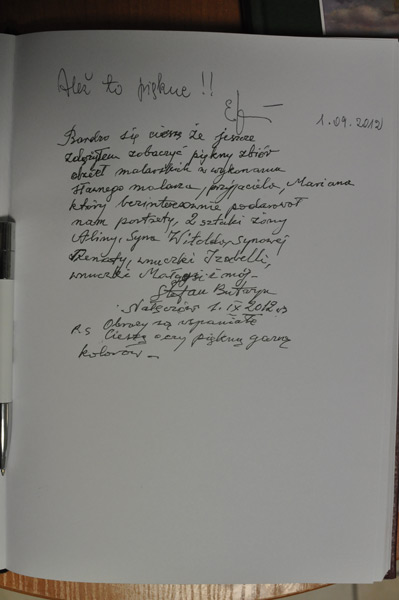 Ależ to piękne !!
1.09.2012
Bardzo się cieszę że jeszcze
zdążyłem zobaczyć piękny zbiór
dzieł malarskich w wykonaniu
sławnego malarza, przyjaciela, Mariana
który bezinteresownie podarował
nam portrety, 2 sztuki żony
Aliny, Syna Witolda, synowej
Renaty, wnuczki Izabelli,
wnuczki Małgosi i mój –
Stefan
Nałęczów 1.IX 2012
P.S Obrazy są wspaniałe
Cieszą oczy piękną gamą
kolorów –